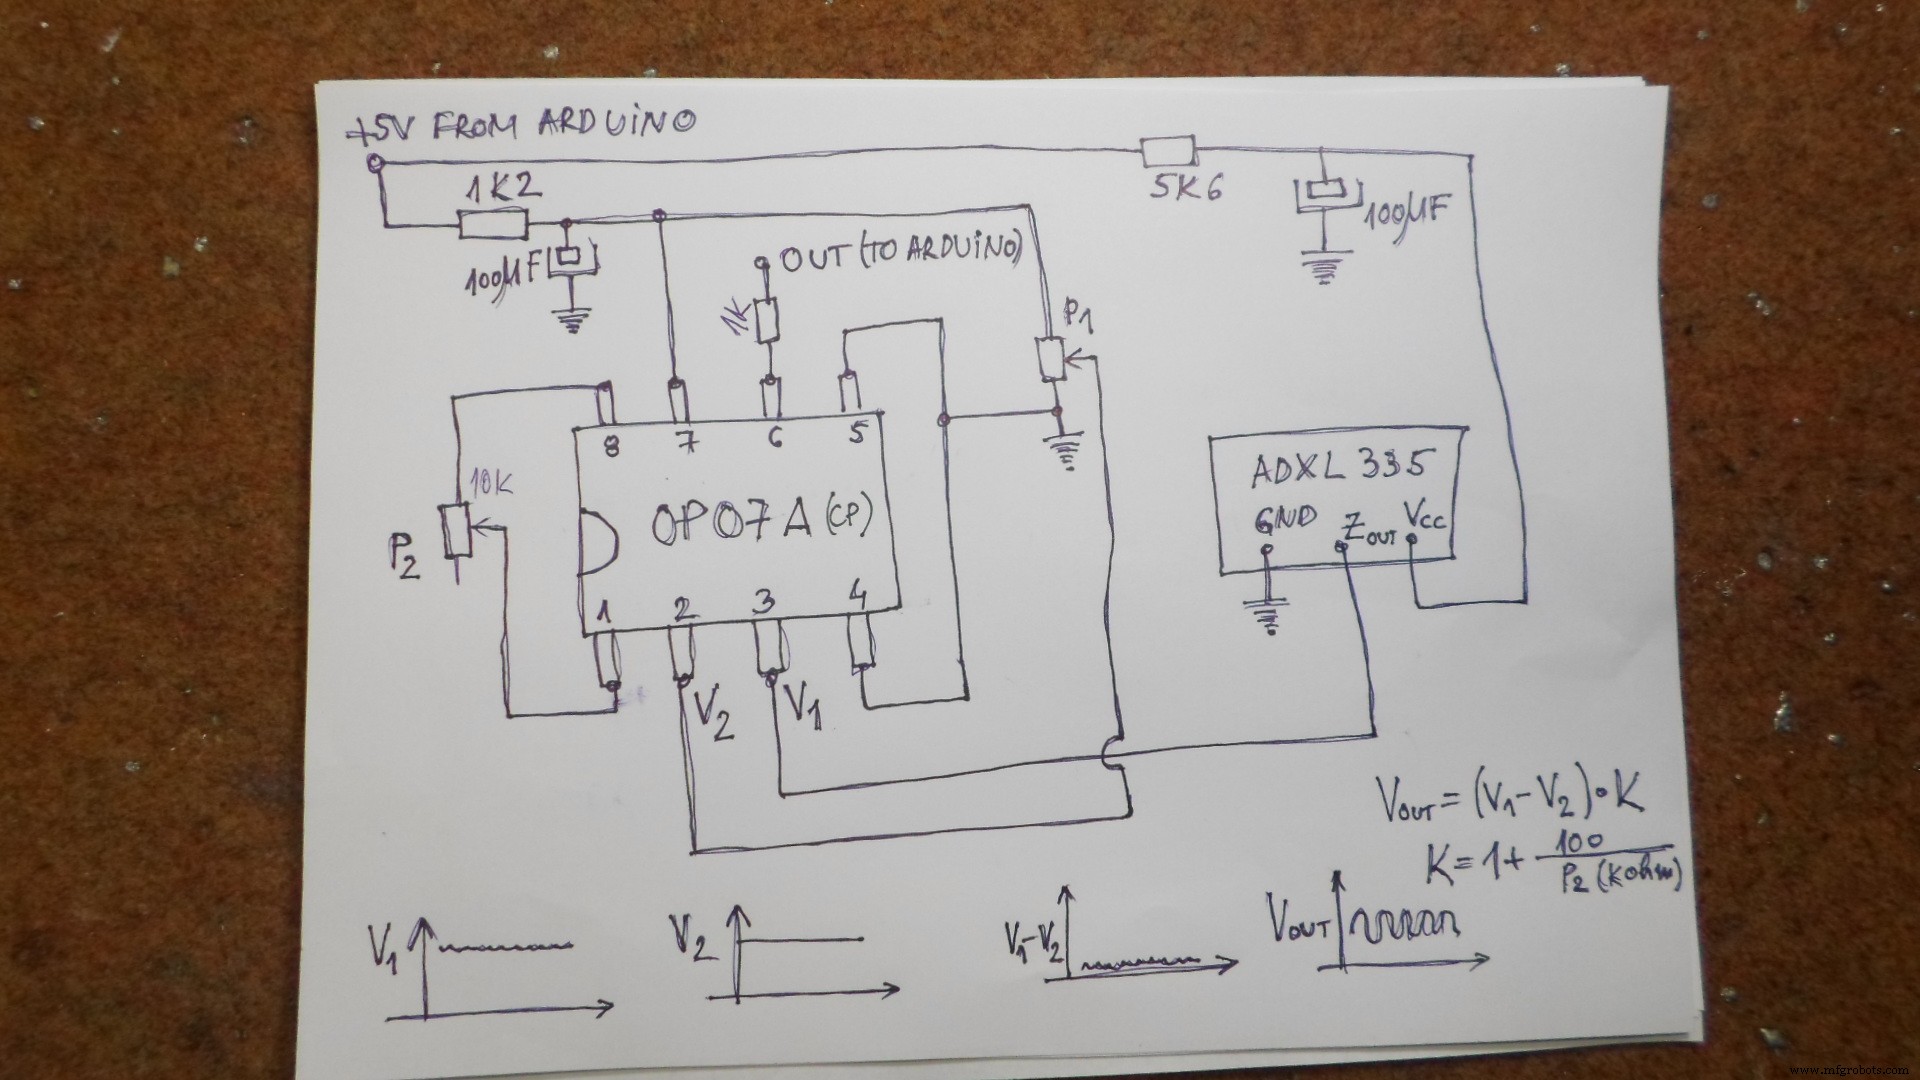 +5V FROM ARDUiNO
1K2
5K6
100µF
100µF
OUT (TO ARDUiNO)
1K
P1
8 7 6 5
10K
P2
OP07A (CP)
ADXL 335
GND ZOUT VCC
1 2 3 4
V2 V1
VOUT = (V1-V2)•K
K=1+ 100
P2 (Kohm)
V1
V2
V1-V2
VOUT
www.mfgrobots.com